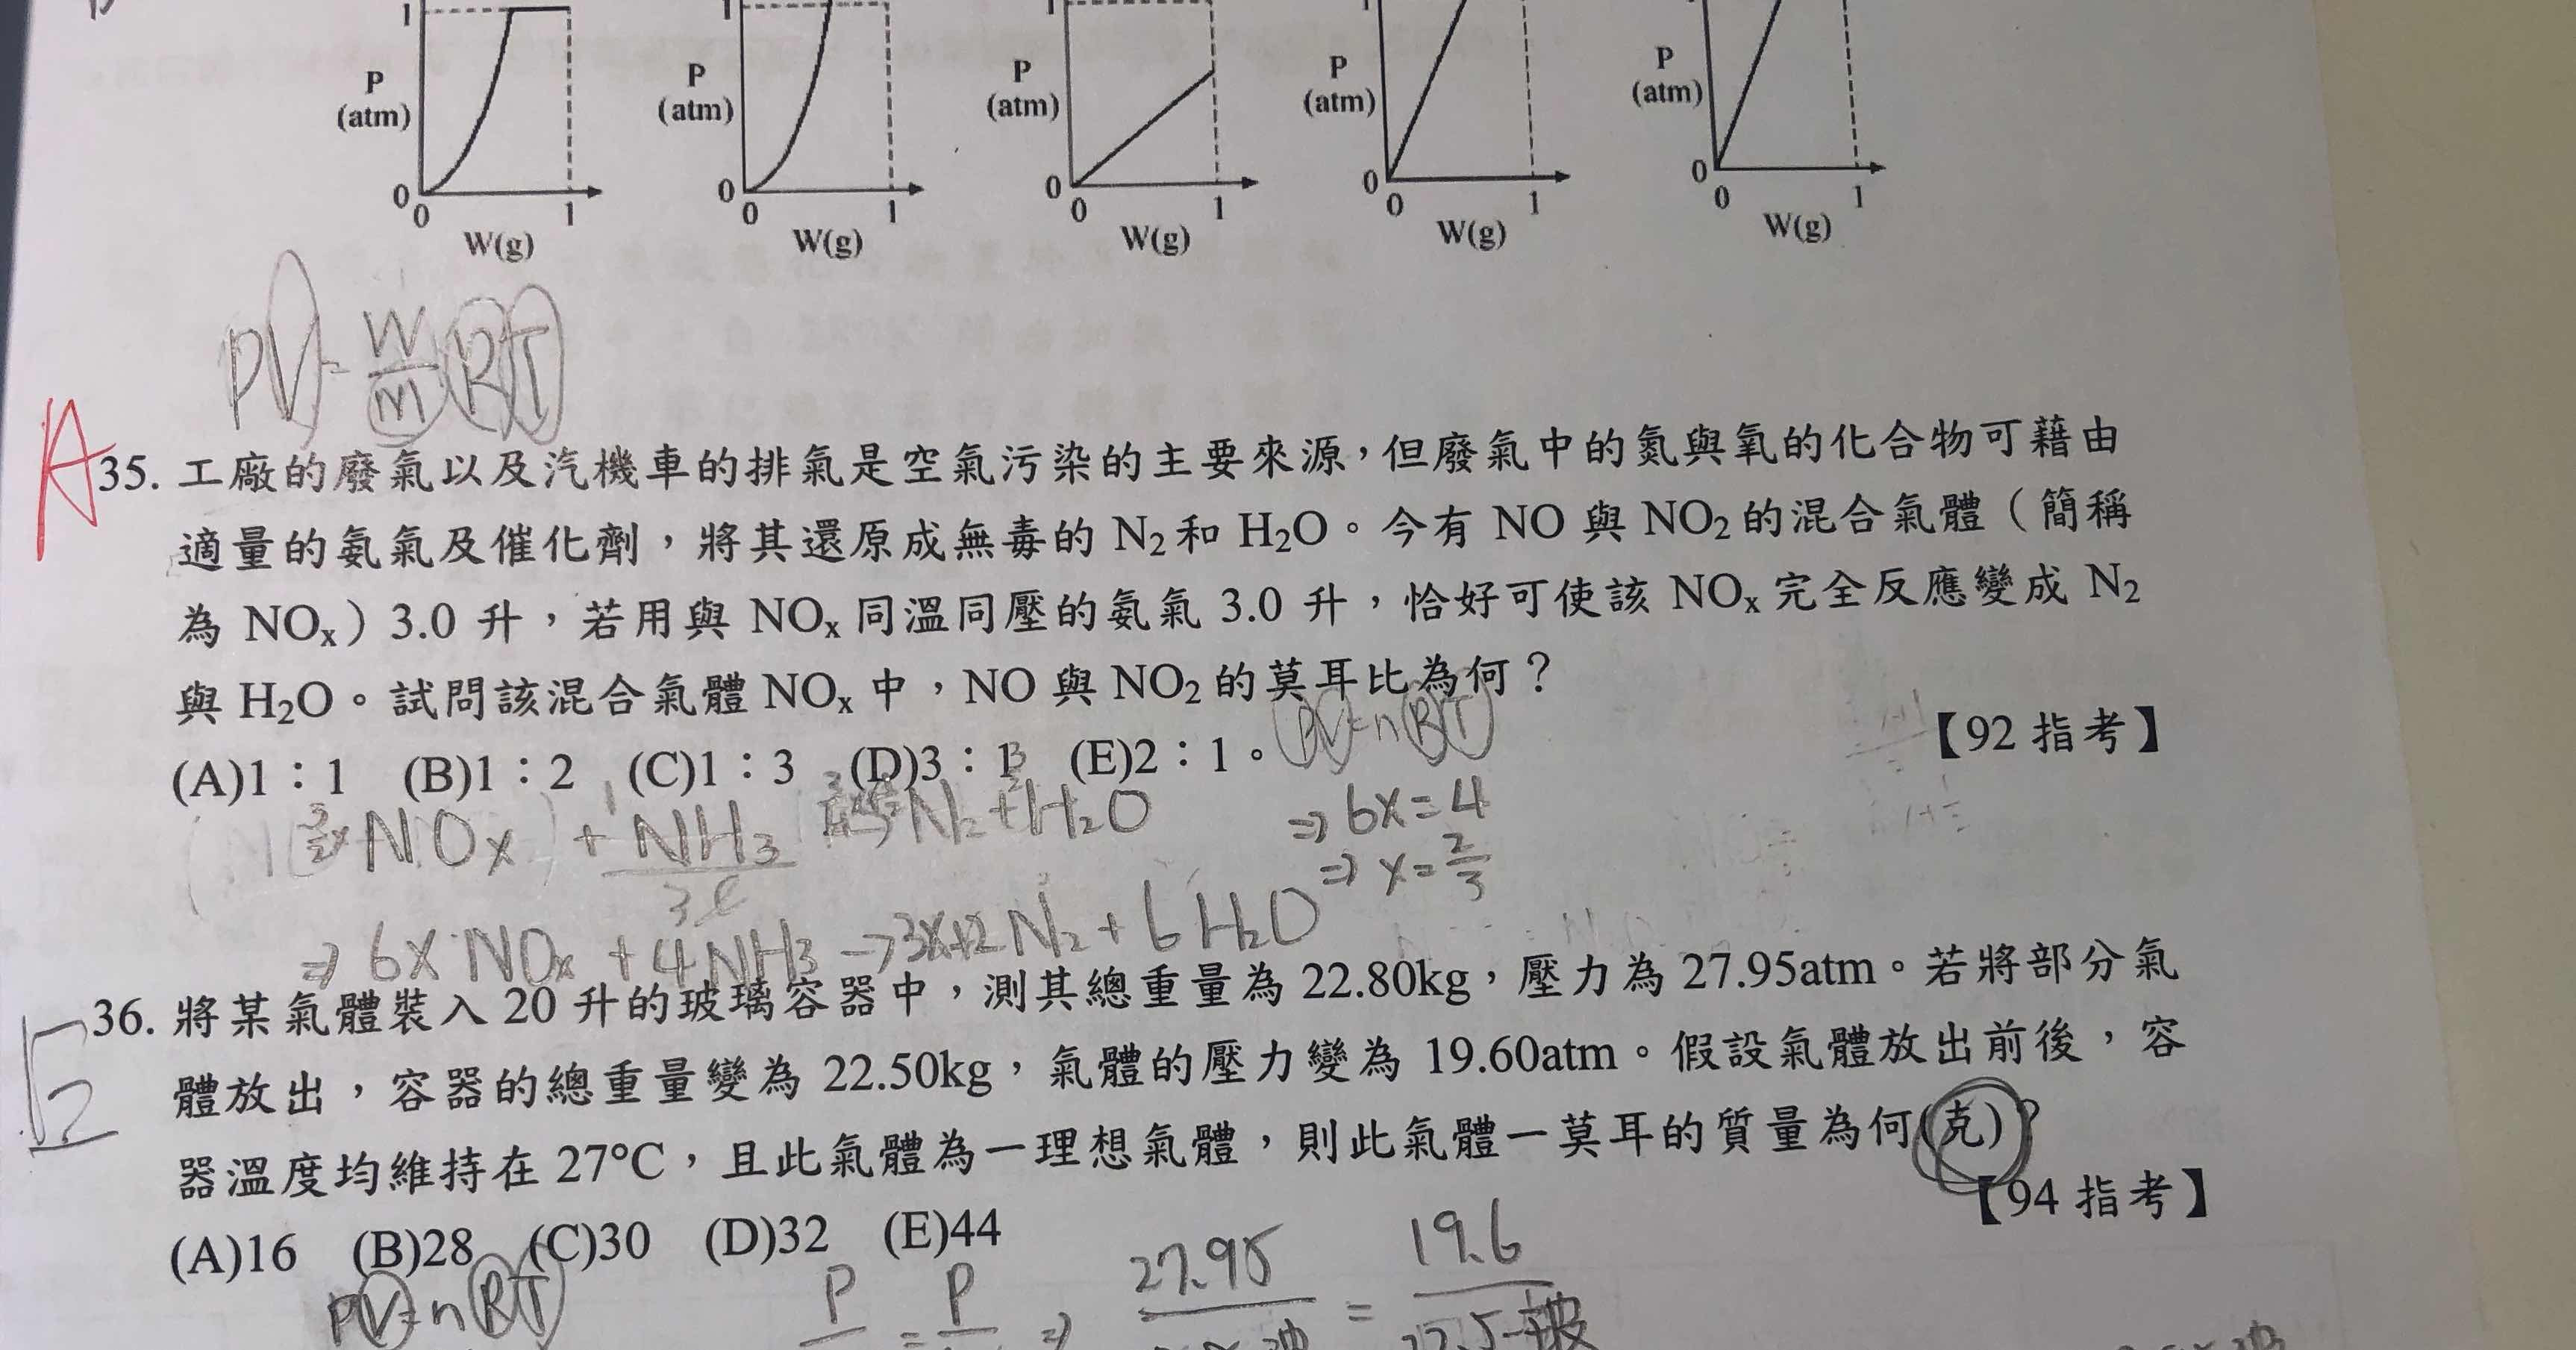 1 1 1 1
P P P P P
(atm) (atm) (atm) (atm) (atm)
0 0 0 0 0
0 1 0 1 0 1 0 1 0 1
W(g) W(g) W(g) W(g) W(g)
PV = W/m RT
A
35. 工廠的廢氣以及汽機車的排氣是空氣污染的主要來源，但廢氣中的氮與氧的化合物可藉由
適量的氨氣及催化劑，將其還原成無毒的 N₂和 H₂O。今有 NO 與 NO₂的混合氣體（簡稱
為 NOₓ）3.0 升，若用與 NOₓ同溫同壓的氨氣 3.0 升，恰好可使該 NOₓ完全反應變成 N₂
與 H₂O。試問該混合氣體 NOₓ中，NO 與 NO₂的莫耳比為何？
PV=nRT
【92 指考】
(A)1：1 (B)1：2 (C)1：3 (D)3：1 (E)2：1。
NOx + NH₃ N₂ + H₂O
⇒ 6x=4
⇒ x=2/3
⇒ 6x NOx + 4NH₃ → 3x+2 N₂ + 6H₂O
36. 將某氣體裝入 20 升的玻璃容器中，測其總重量為 22.80kg，壓力為 27.95atm。若將部分氣
體放出，容器的總重量變為 22.50kg，氣體的壓力變為 19.60atm。假設氣體放出前後，容
器溫度均維持在 27°C，且此氣體為一理想氣體，則此氣體一莫耳的質量為何(克)？
【94 指考】
(A)16 (B)28 (C)30 (D)32 (E)44
PV=nRT
P = P ⇒ 27.95 = 19.6
22.5-玻